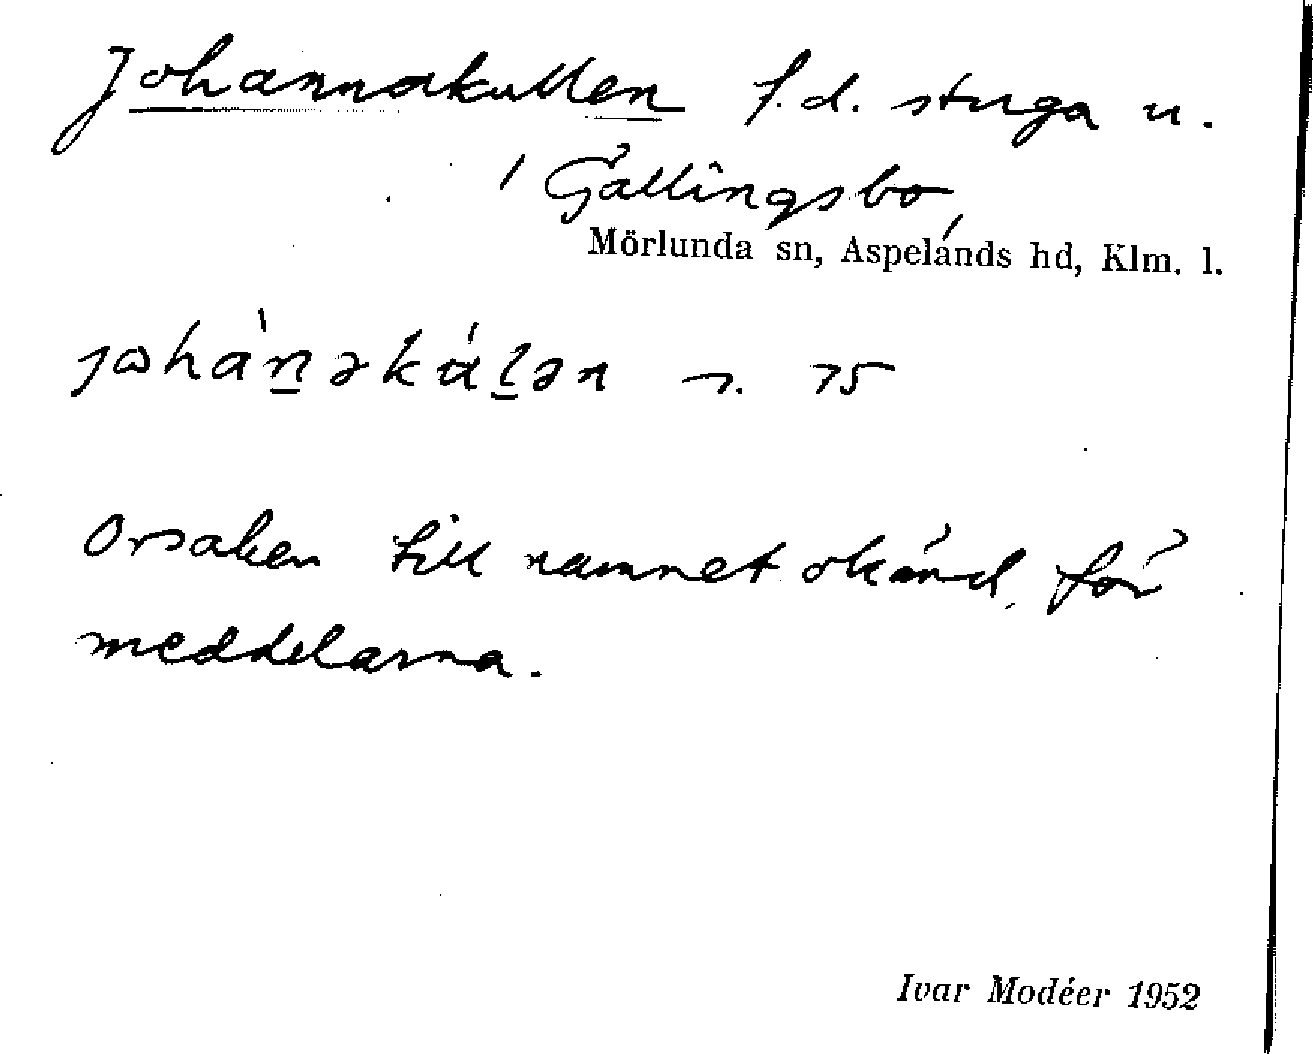 Johannakullen f.d. stuga u.
Gällingsbo,
Mörlunda sn, Aspelands hd, Klm. l.
johànəkálən
Orsaken till namnet okänd för
meddelarna.
Ivar Modéer 1952